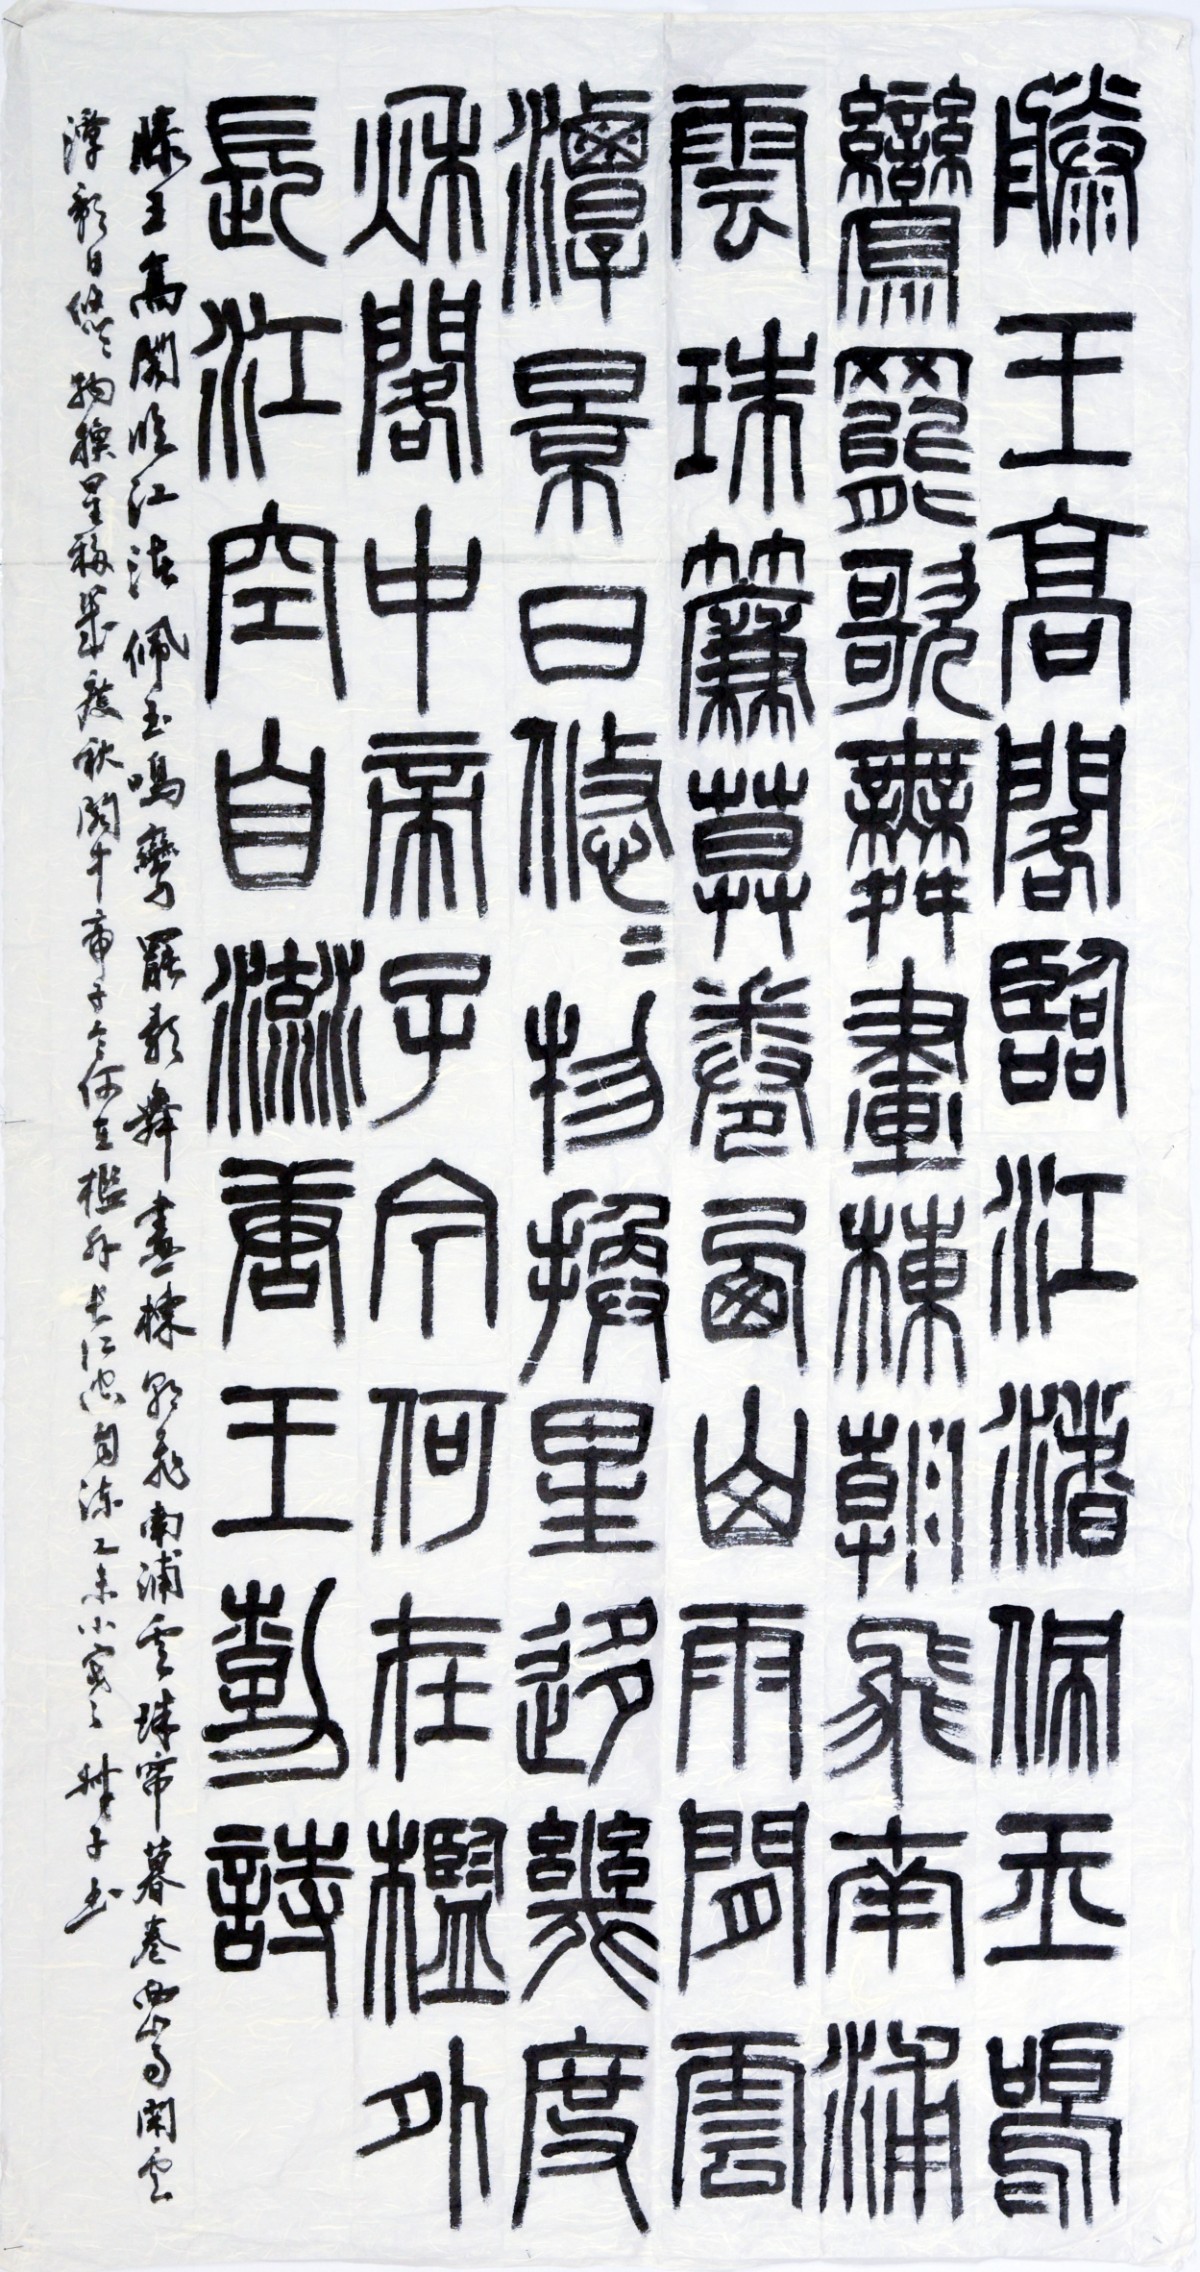 滕王高閣臨江渚佩玉鳴
鸞罷歌舞畫棟朝飛南浦
雲珠簾莫卷西山雨閒雲
潭景日悠〻物換星移幾度
秋閣中帝子今何在檻外
長江空自流唐王勃詩
滕王高閣臨江渚佩玉鳴鸞罷歌舞畫棟朝飛南浦雲珠帘暮卷西山雨閑雲
潭影日悠〻物換星移幾度秋閣中帝子今何在檻外長江空自流乙未小寒 子書